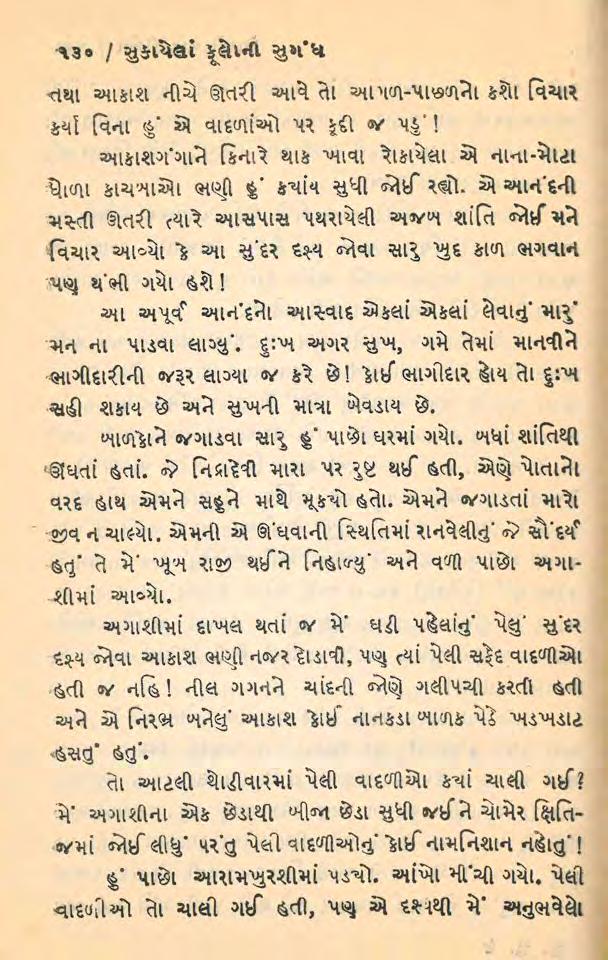 ૧૩૦ / સુકાયેલાં ફૂલોની સુગંધ
તથા આકાશ નીચે ઊતરી આવે તો આપળ-પાછળનો કશો વિચાર
કર્યા વિના હું એ વાદળાંઓ પર કૂદી જ પડું !
આકાશગંગાને કિનારે થાક ખાવા રોકાયેલા એ નાના-મોટા
ધોળા કાચબાઓ ભણી હું કયાંય સુધી જોઈ રહ્યો. એ આનંદની
મસ્તી ઊતરી ત્યારે આસપાસ પથરાયેલી અજબ શાંતિ જોઈ મને
વિચાર આવ્યો કે આ સુંદર દૃશ્ય જોવા સારુ ખુદ કાળ ભગવાન
પણ થંભી ગયો હશે !
આ અપૂર્વ આનંદનો આસ્વાદ એકલાં એકલાં લેવાનું મારું
મન ના પાડવા લાગ્યું. દુઃખ અગર સુખ, ગમે તેમાં માનવીને
ભાગીદારીની જરૂર લાગ્યા જ કરે છે! કોઈ ભાગીદાર હોય તો દુઃખ
સહી શકાય છે અને સુખની માત્રા બેવડાય છે.
બાળકોને જગાડવા સારુ હું પાછો ઘરમાં ગયો. બધાં શાંતિથી
ઊંઘતાં હતાં. જે નિદ્રાદેવી મારા પર રુષ્ટ થઈ હતી, એણે પોતાનો
વરદ હાથ એમને સહુને માથે મૂકયો હતો. એમને જગાડતાં મારો
જીવ ન ચાલ્યો. એમની એ ઊંઘવાની સ્થિતિમાં રાનવેલીનું જે સૌંદર્ય
હતું તે મેં ખૂબ રાજી થઈને નિહાળ્યું અને વળી પાછો અગા-
શીમાં આવ્યો.
અગાશીમાં દાખલ થતાં જ મેં ઘડી પહેલાંનું પેલું સુંદર
દૃશ્ય જોવા આકાશ ભણી નજર દોડાવી, પણ ત્યાં પેલી સફેદ વાદળીઓ
હતી જ નહિ ! નીલ ગગનને ચાંદની જાણે ગલીપચી કરતી હતી
અને એ નિરભ્ર બનેલું આકાશ કોઈ નાનકડા બાળક પેઠે ખડખડાટ
હસતું હતું.
તો આટલી થોડીવારમાં પેલી વાદળીઓ કયાં ચાલી ગઈ ?
મેં અગાશીના એક છેડાથી બીજા છેડા સુધી જઈને ચોમેર ક્ષિતિ-
જમાં જોઈ લીધું પરંતુ પેલી વાદળીઓનું કોઈ નામનિશાન નહોતું !
હું પાછો આરામખુરશીમાં પડયો. આંખો મીંચી ગયો. પેલી
વાદળીઓ તો ચાલી ગઈ હતી, પણ એ દૃશ્યથી મેં અનુભવેલો